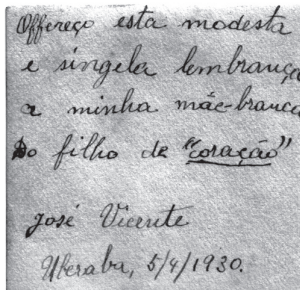 Offereço esta modesta
e singela lembrança
a minha mãe-branca
Do filho de "coração"
José Vicente
Uberaba, 5/4/1930.